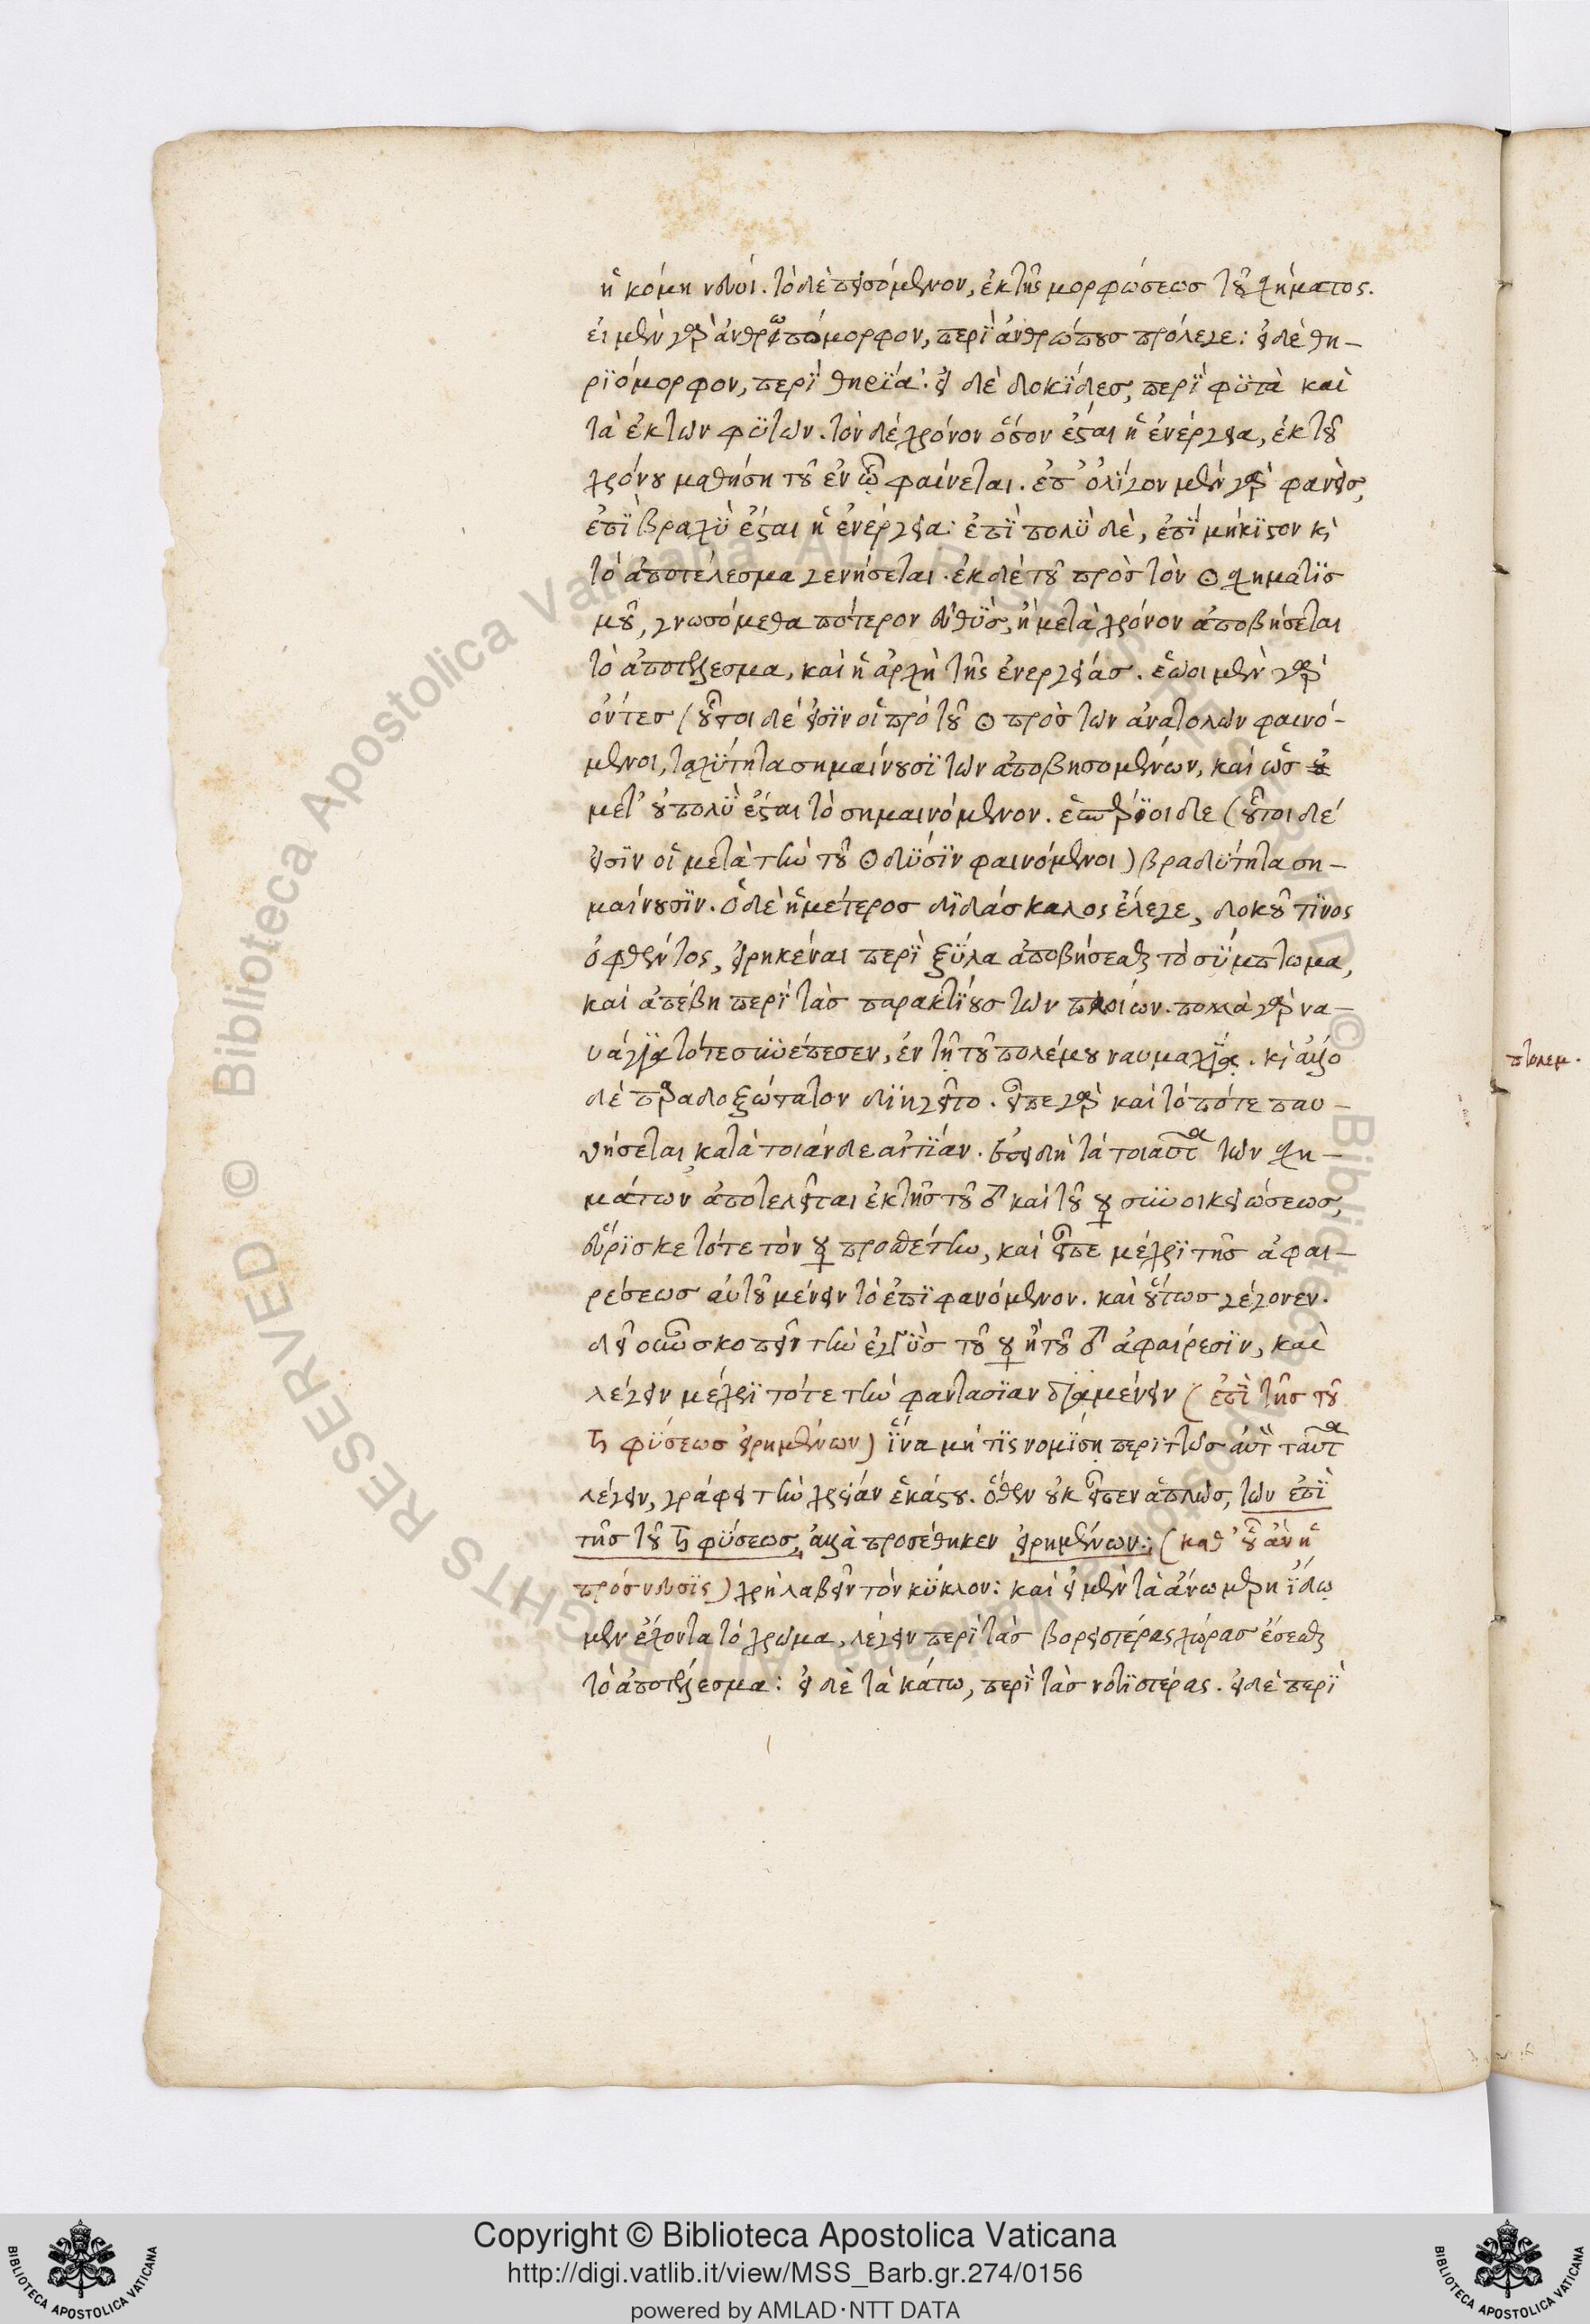 ἡ κόμη νεύοι. τὸ δὲ πεισόμενον, ἐκ τῆς μορφώσεως τοῦ σχήματος.
εἰ μὲν γὰρ ἀνθρωπόμορφον, περὶ ἀνθρώπους πρόλεγε: εἰ δὲ θη-
ριόμορφον, περὶ θηρία: εἰ δὲ δοκίδες, περὶ φυτὰ καὶ
τὰ ἐκ τῶν φυτῶν. τὸν δὲ χρόνον ὅσον ἔσται ἡ ἐνέργεια, ἐκ τοῦ
χρόνου μαθήσῃ τοῦ ἐν ᾧ φαίνεται. ἐπ' ὀλίγον μὲν γὰρ φανεὶς,
ἐπὶ βραχὺ ἔσται ἡ ἐνέργεια: ἐπὶ πολὺ δὲ, ἐπὶ μήκιστον κὶ
τὸ ἀποτέλεσμα γενήσεται. ἐκ δὲ τοῦ πρὸς τὸν ☉ σχηματισ
μοῦ, γνωσόμεθα πότερον εὐθὺς, ἢ μετὰ χρόνον ἀποβήσεται
τὸ ἀποτέλεσμα, καὶ ἡ ἀρχὴ τῆς ἐνεργείας. ἑῶοι μὲν γὰρ
ὄντες (οὗτοι δέ εἰσιν οἱ πρὸ τοῦ ☉ πρὸς τῶν ἀνατολῶν φαινό-
μενοι, ταχύτητα σημαίνουσι τῶν ἀποβησομένων, καὶ ὡς
μετ' οὐ πολὺ ἔσται τὸ σημαινόμενον. ἑσπέριοι δε (οὗτοι δέ
εἰσιν οἱ μετὰ τὴν τοῦ ☉ δύσιν φαινόμενοι) βραδύτητα ση-
μαίνουσιν. ὁ δὲ ἡμέτερος διδάσκαλος ἔλεγε, δοκοῦ τινος
ὀφθέντος, εἰρηκέναι περὶ ξύλα ἀποβήσεσθαι τὸ σύμπτωμα,
καὶ ἀπέβη περὶ τὰς παρακτίους τῶν πλοίων. πολλὰ γὰρ να-
υάγια τότε συνέπεσεν, ἐν τῇ τοῦ πολέμου ναυμαχίᾳ. κὶ ἄλλο
δὲ παραδοξώτατον διηγεῖτο. εἶπε γὰρ καὶ τὸ πότε παυ-
θήσεται, κατὰ τοιάνδε αἰτίαν. ἐπειδὴ τὰ τοιαῦτα τῶν σχη-
μάτων ἀποτελεῖται ἐκ τῆς τοῦ ♂ καὶ τοῦ ☿ συνοικειώσεως,
εὕρισκε τότε τὸν ☿ προσθέτην, καὶ εἶπε μέχρι τῆς ἀφαι-
ρέσεως αὐτοῦ μένειν τὸ ἐπιφανόμενον. καὶ οὕτως γέγονεν.
δεῖ οὖν σκοπεῖν τὴν ἐγγὺς τοῦ ☿ ἢ τοῦ ♂ ἀφαίρεσιν, καὶ
λέγειν μέχρι τότε τὴν φαντασίαν διαμένειν (ἐπὶ τῆς τοῦ
♄ φύσεως εἰρημένων) ἵνα μή τις νομίσῃ περιττῶς αὐτὸν ταῦτα
λέγειν, γράφει τὴν χρείαν ἑκάστου. ὅθεν οὐκ εἶπεν ἁπλῶς, τῶν ἐπὶ
τῆς τοῦ ♄ φύσεως, ἀλλὰ προσέθηκεν εἰρημένων: (καθ' οὗ ἂν ἡ
πρόσνευσις) χρὴ λαβεῖν τὸν κύκλον: καὶ εἰ μὲν τὰ ἄνω μέρη ἴδω
μεν ἔχοντα τὸ χρῶμα, λέγειν περὶ τὰς βορειοτέρας χώρας ἔσεσθαι
τὸ ἀποτέλεσμα: εἰ δὲ τὰ κάτω, περὶ τὰς νοτιωτέρας. εἰ δὲ περὶ
πτολεμ.
Copyright © Biblioteca Apostolica Vaticana
http://digi.vatlib.it/view/MSS_Barb.gr.274/0156
powered by AMLAD·NTT DATA